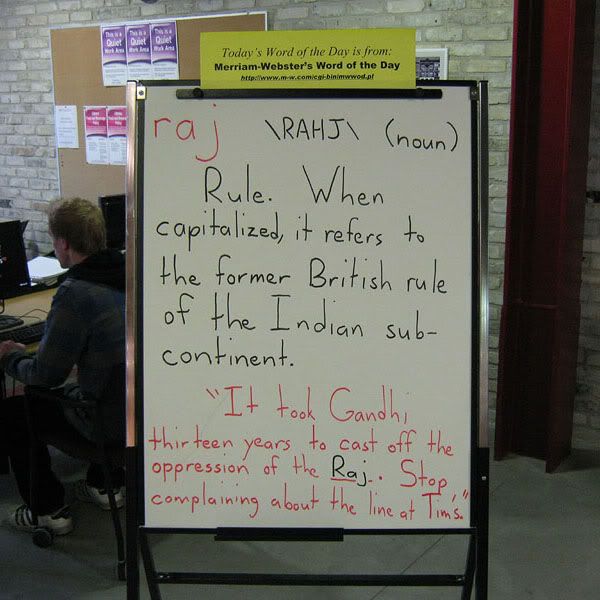 This is a
Quiet
Work Area
This is a
Quiet
Work Area
This is a
Quiet
Work Area
Today's Word of the Day is from:
Merriam-Webster's Word of the Day
http://www.m-w.com/cgi-bin/mwwod.pl
raj \RAHJ\ (noun)
Rule. When
capitalized, it refers to
the former British rule
of the Indian sub-
continent.
"It took Gandhi
thirteen years to cast off the
oppression of the Raj. Stop
complaining about the line at Tim's."